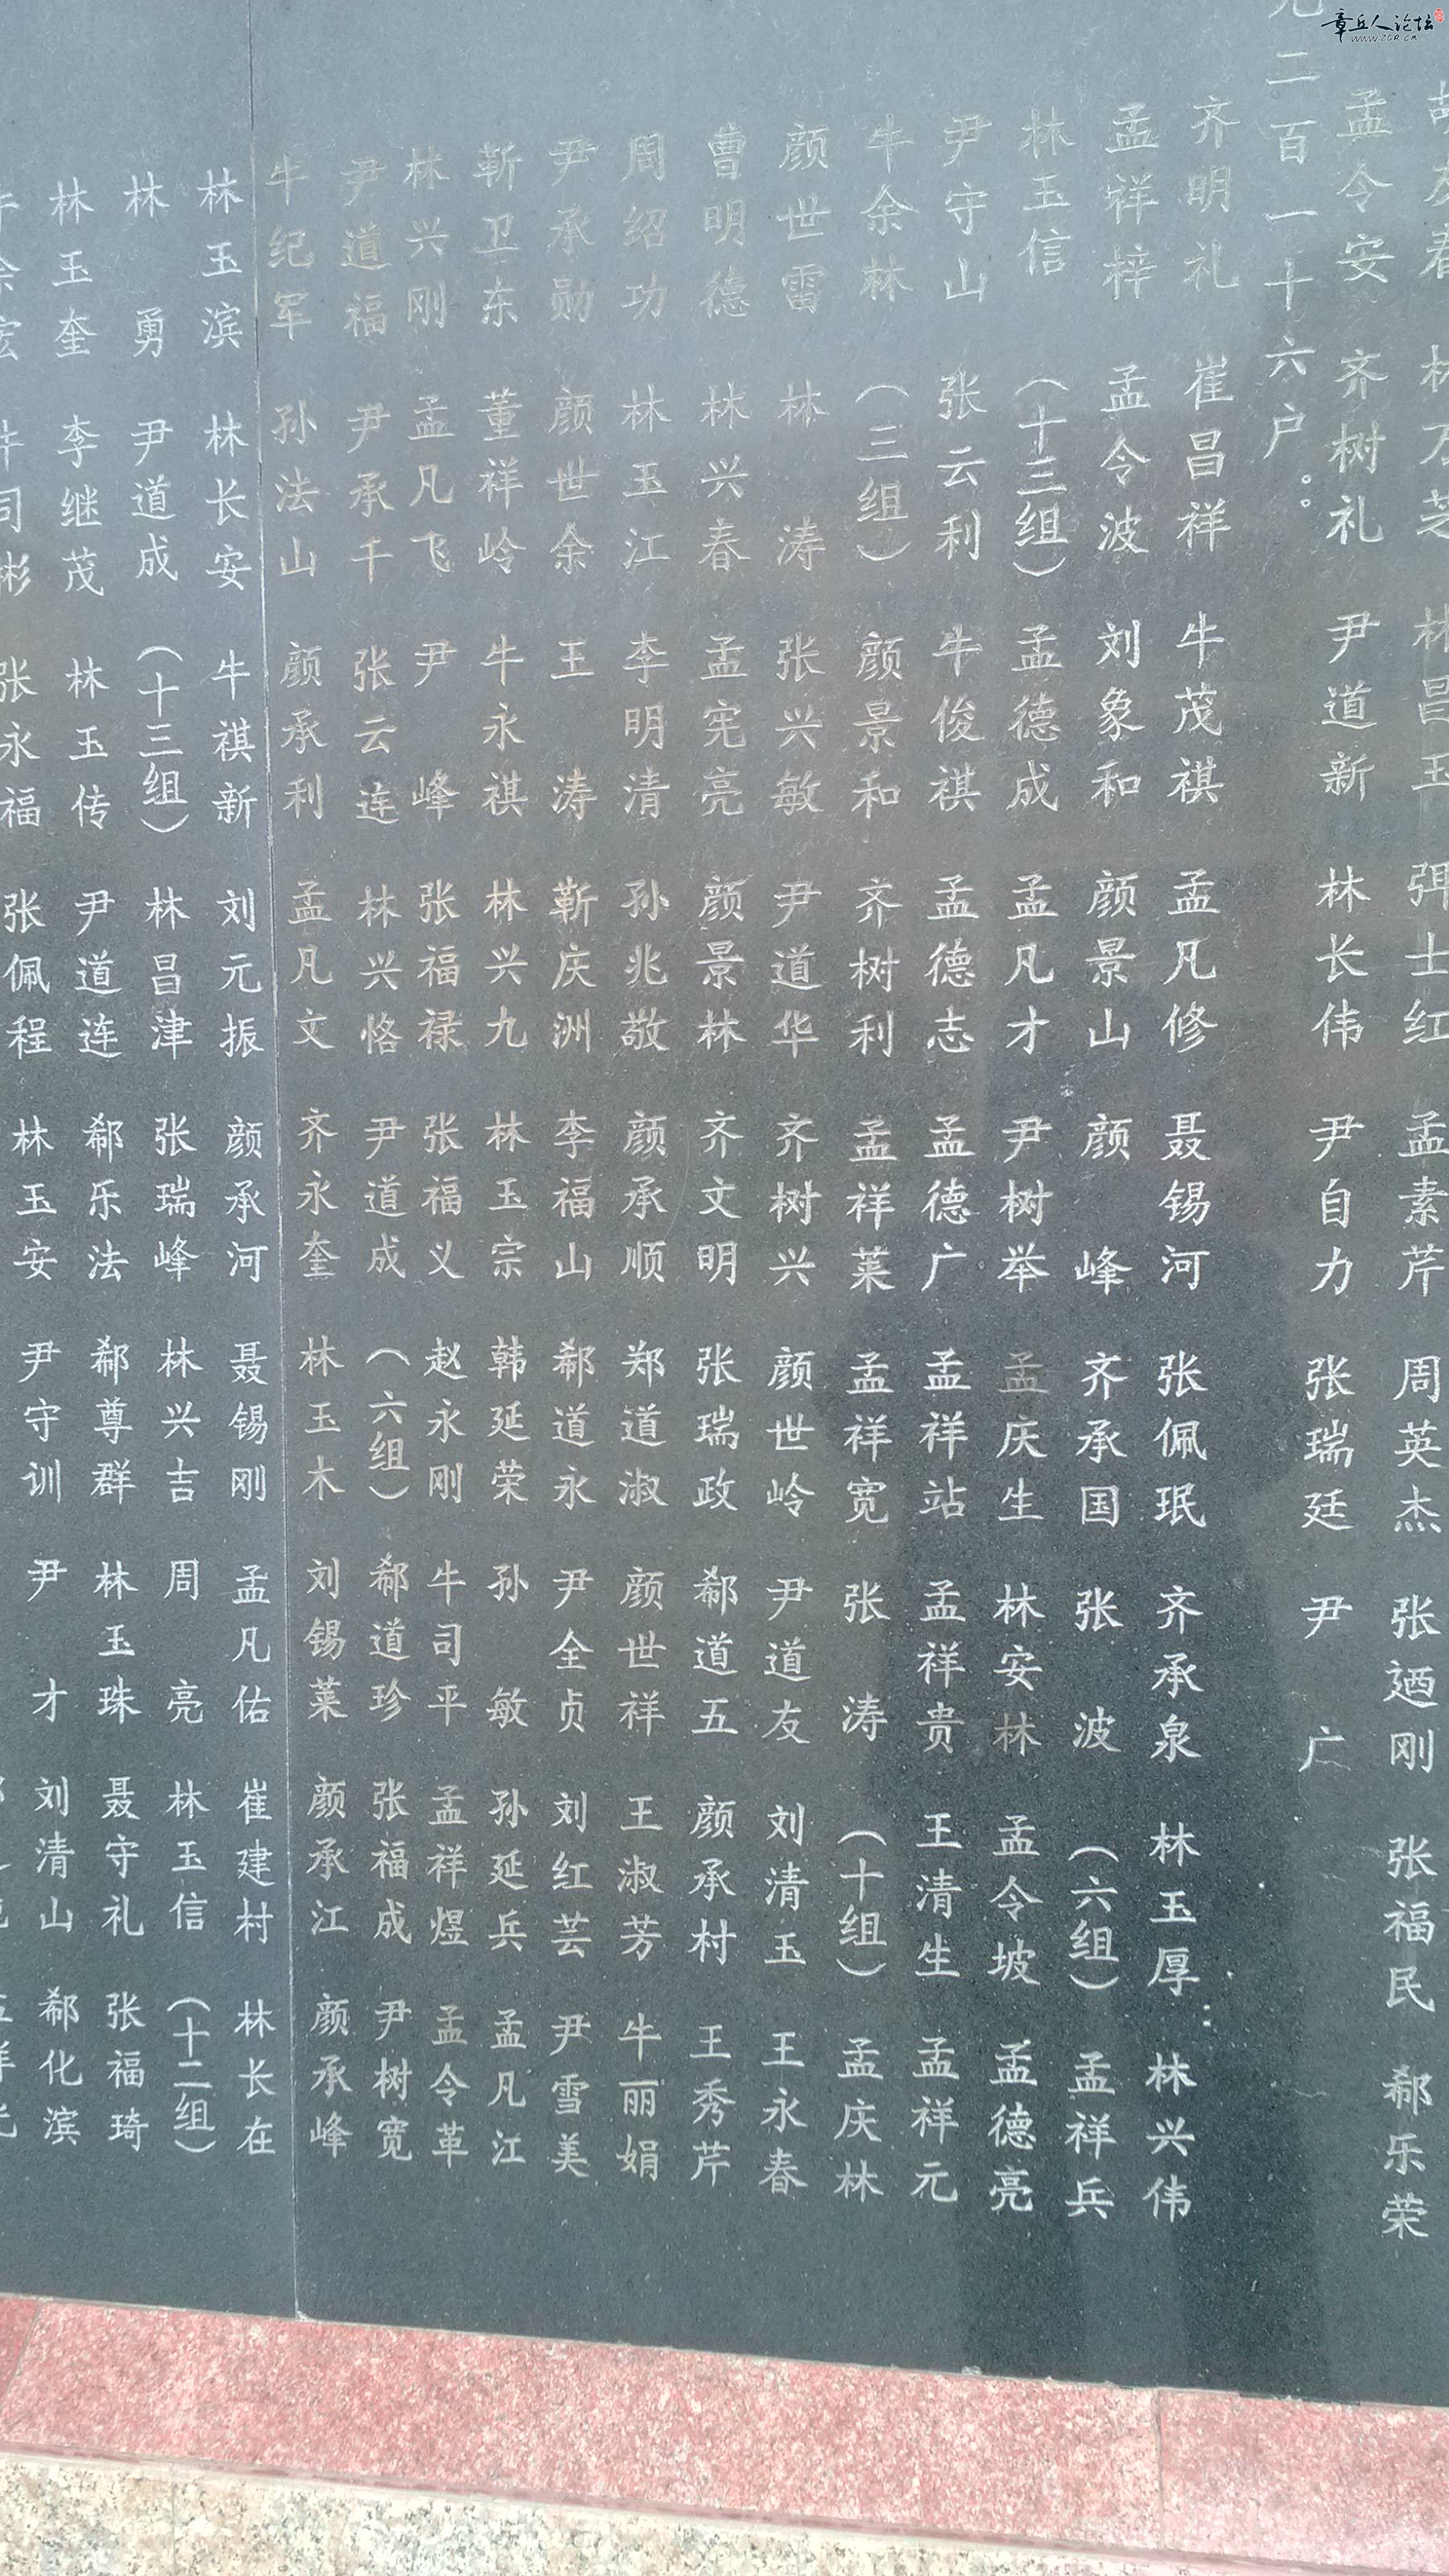 章丘人论坛
www.ZQR.CN
林昌玉 弭士红 孟素芹 周英杰 张廼刚 张福民 郗乐荣
孟令安 齐树礼 尹道新 林长伟 尹自力 张瑞廷 尹广
二百一十六户。:
齐明礼 崔昌祥 牛茂祺 孟凡修 聂锡河 张佩珉 齐承泉 林玉厚 林兴伟
孟祥梓 孟令波 刘象和 颜景山 颜峰 齐承国 张波 （六组） 孟祥兵
林玉信 （十三组） 孟德成 孟凡才 尹树举 孟庆生 林安林 孟令坡 孟德亮
尹守山 张云利 牛俊祺 孟德志 孟德广 孟祥站 孟祥贵 王清生 孟祥元
牛余林 （三组） 颜景和 齐树利 孟祥莱 孟祥宽 张涛 （十组） 孟庆林
颜世雷 林涛 张兴敏 尹道华 齐树兴 颜世岭 尹道友 刘清玉 王永春
曹明德 林兴春 孟宪亮 颜景林 齐文明 张瑞政 郗道五 颜承村 王秀芹
周绍功 林玉江 李明清 孙兆敬 颜承顺 郑道淑 颜世祥 王淑芳 牛丽娟
尹承勋 颜世余 王涛 靳庆洲 李福山 郗道永 尹全贞 刘红芸 尹雪美
靳卫东 董祥岭 牛永祺 林兴九 林玉宗 韩延荣 孙敏 孙延兵 孟凡江
林兴刚 孟凡飞 尹峰 张福禄 张福义 赵永刚 牛司平 孟祥煜 孟令革
尹道福 尹承千 张云连 林兴恪 尹道成 （六组） 郗道珍 张福成 尹树宽
牛纪军 孙法山 颜承利 孟凡文 齐永奎 林玉木 刘锡莱 颜承江 颜承峰
林玉滨 林长安 牛祺新 刘元振 颜承河 聂锡刚 孟凡佑 崔建村 林长在
林勇 尹道成 （十三组） 林昌津 张瑞峰 林兴吉 周亮 林玉信 （十二组）
林玉奎 李继茂 林玉传 尹道连 郗乐法 郗尊群 林玉珠 聂守礼 张福琦
张永福 张佩程 林玉安 尹守训 尹才 刘清山 郗化滨